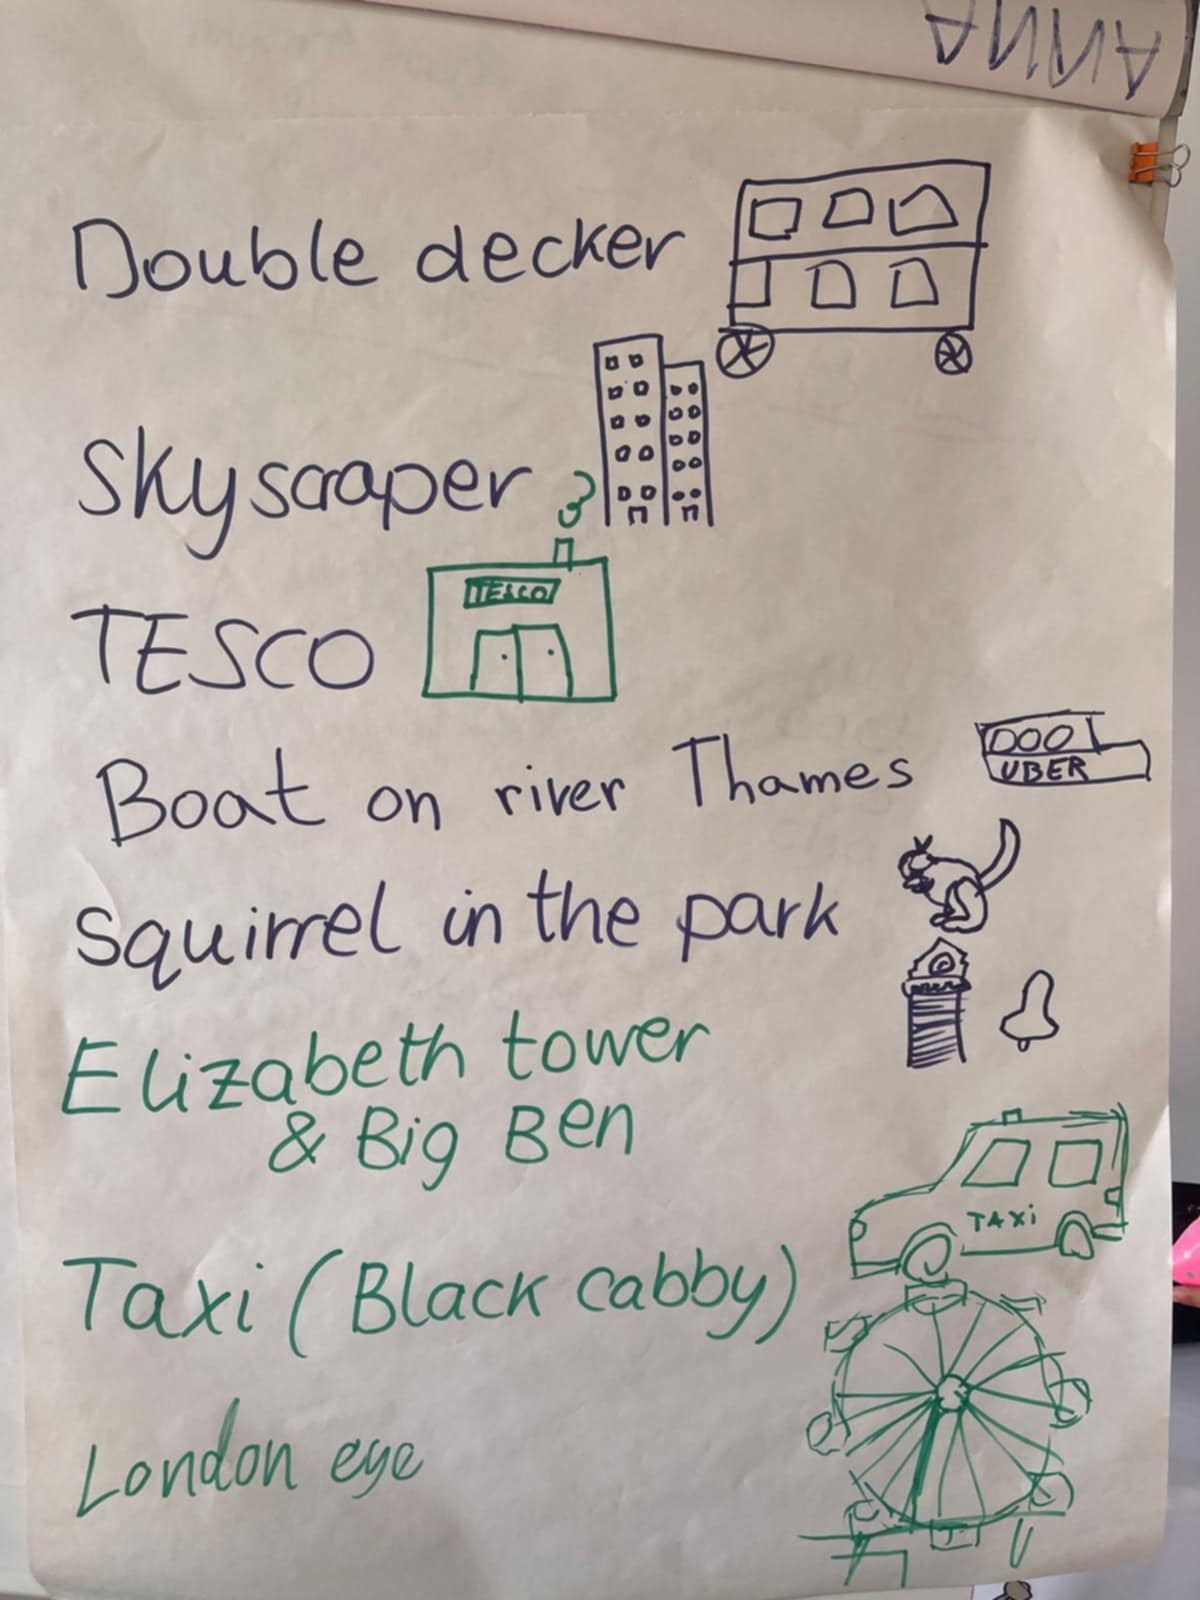 ANNA
Double decker
Skyscraper
TESCO
TESCO
Boat on river Thames
UBER
Squirrel in the park
Elizabeth tower
& Big Ben
TAXi
Taxi (Black cabby)
London eye